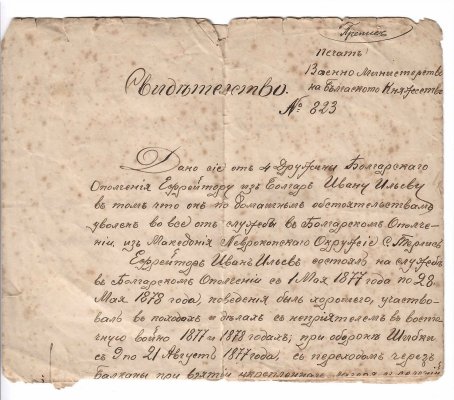 Преписъ
Печатъ
Военно Министерство
на Българското Княжество
Свидѣтелство.
№ 823
Дано сіе отъ 4 Дружины Болгарскаго
Ополченія Ефрейтору изъ Болгаръ Ивану Ильеву
въ томъ что онъ по домашнымъ обстоятельствамъ
уволенъ во все отъ службы въ Болгарскомъ Ополче-
ніи изъ Македонія Неврокопскаго Окружіе С. Тѣрлисъ
Ефрейторъ Иванъ Ильевъ состоялъ на службѣ
въ Болгарскомъ Ополченіи съ 1 Мая 1877 года по 28
Мая 1878 года, поведенія былъ хорошего, участво-
валъ въ походахъ и дѣлахъ съ непріятелемъ въ восточ-
ную войно 1877 и 1878 годахъ; при оборонѣ Шибки
съ 9 по 21 Августъ 1877 года, съ переходомъ черезъ
Балканы при взятіи укрепленнаго